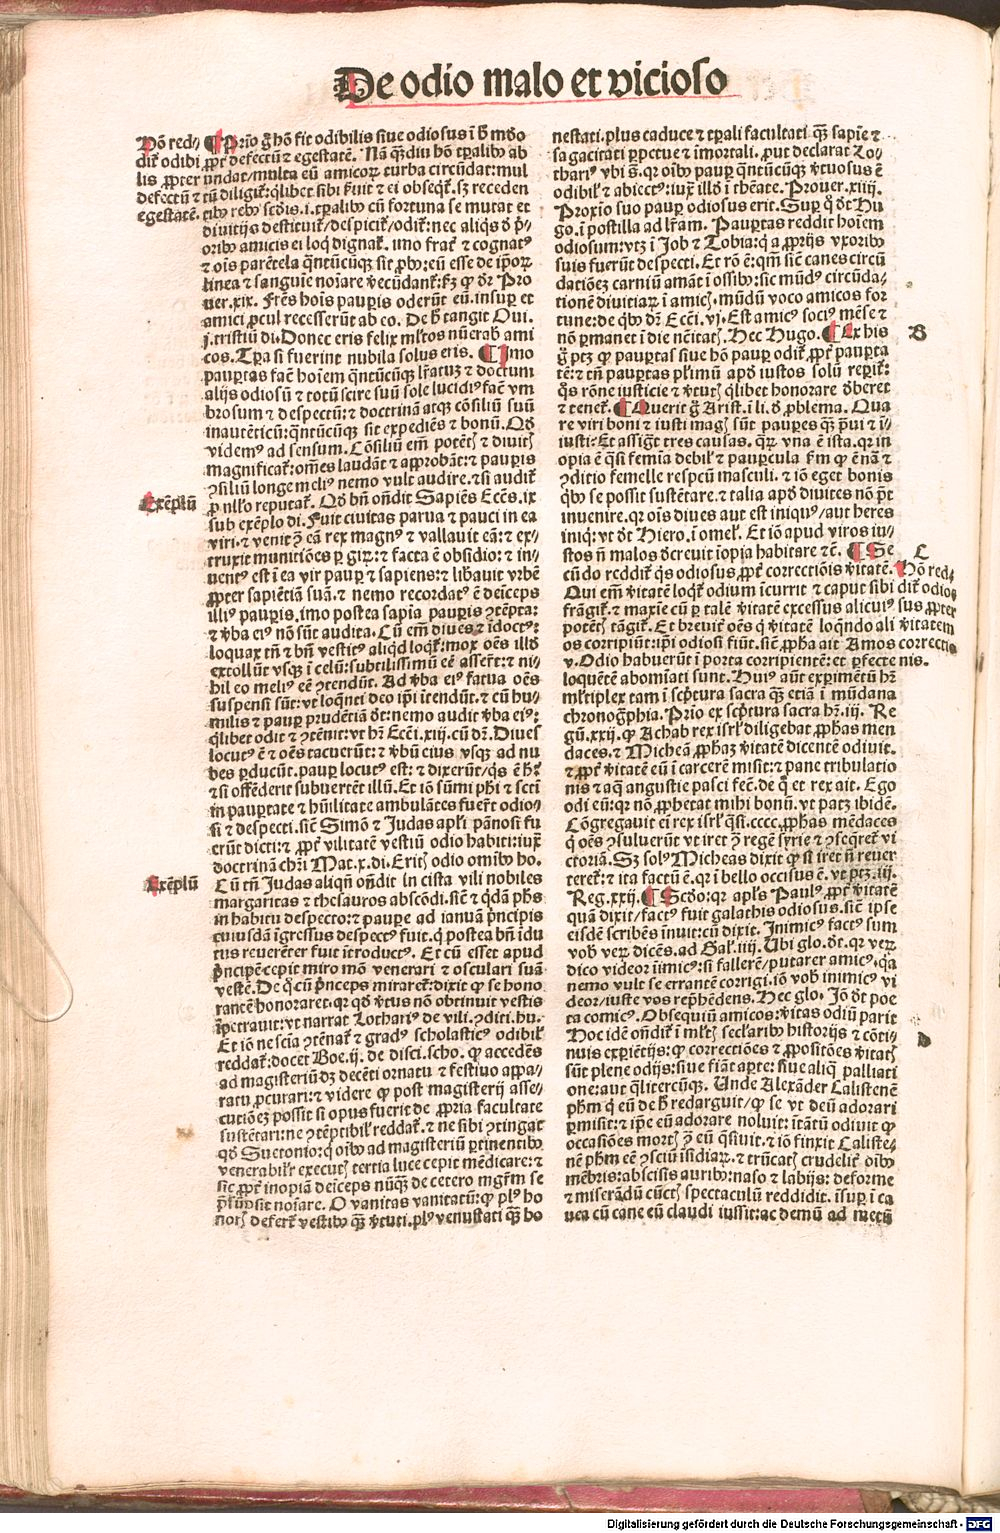 De odio malo et vicioso
Hō red⸗
dit᷑ odibi
lis ꝓpter
defectū ⁊
egestatē.
¶ Prīo g̊ hō fit odibilis siue odiosus ī h̄ mūdo
ꝓpt᷑ defectū ⁊ egestatē. Nā q̄ꝫdiu hō tꝑalibꝰ ab
undat/multa eū amicoꝝ turba circūdat: mul
tū diligit᷑: qͥlibet sibi ẜuit ⁊ ei obseqͥt᷑. sꝫ receden
tibꝰ rebꝰ scd̓is. i. tꝑalibꝰ cū fortuna se mutat et
diuitijs destituit᷑/despicit᷑/odit᷑: nec aliqͥs d̓ pͥ⸗
oribꝰ amicis ei loqͥ dignat᷑. imo frat᷑ ⁊ cognatꝰ
⁊ oīs parētela qͣntūcūqꝫ sit ꝓbꝰ: eū esse de ip̄oꝝ
linea ⁊ sanguīe noīare v̓ecūdant᷑: ẜꝫ ꝙ dr̄ Pro
uer. xix. Fr̄es hoīs pauꝑis oderūt eū. insuꝑ et
amici ꝓcul recesserūt ab eo. De h̄ tangit Oui.
j. tristiū di. Donec eris felix ml̓tos nūerab̓ ami
cos. Tꝑa si fuerint nubila solus eris. ¶ Imo
pauꝑtas facit hoīem qͣntūcūqꝫ lr̄atuꝫ ⁊ doctum
alijs odiosū ⁊ totū scire suū sole lucidiꝰ facit vm
brosum ⁊ despectū: ⁊ doctrinā atqꝫ cōsiliū suū
inautēticū: qͣntūcūqꝫ sit expediēs ⁊ bonū. Qd̓
videmꝰ ad sensum. Cōsiliū em̄ potētū ⁊ diuitū
magnificat᷑: om̄es laudāt ⁊ approbāt: ⁊ pauꝑis
ꝯsiliū longe meliꝰ nemo vult audire. ⁊ si audit᷑
ꝓ nll̓o reputat᷑. Qd̓ bn̄ oñdit Sapiēs Eccs̄. ix
sub exēplo di. Fuit ciuitas parua ⁊ pauci in ea
viri. ⁊ venit ꝯ̄ eā rex magnꝰ ⁊ vallauit eā: ⁊ ex⸗
truxit munitiōes ꝑ giꝝ. ⁊ facta ē obsidio: ⁊ in⸗
uentꝰ est ī ea vir pauꝑ ⁊ sapiens: ⁊ lib̓auit vrbē
ꝓpter sapiētiā suā. ⁊ nemo recordatꝰ ē deiceps
illiꝰ pauꝑis. imo postea sapīa pauꝑis ꝯtēpta:
⁊ v̓ba eiꝰ nō sūt audita. Cū em̄ diues ⁊ īdoctꝰ:
loquax tn̄ ⁊ bn̄ vestitꝰ aliqͥd loqͥt᷑: mox oēs illd̓
extollūt vsqꝫ ī celū: subtilissimū eē asserūt: ⁊ ni⸗
hil eo meliꝰ eē ꝯtendūt. Ad v̓ba eiꝰ fatua oēs
suspensi sūt: vt loqͥnti deo ip̄i ītendūt. ⁊ cū hu⸗
milis ⁊ pauꝑ prudētiā d̄t: nemo audit v̓ba eiꝰ:
qͥlibet odit ⁊ ꝯtēnit: vt hr̄ Ecci. xiij. cū dr̄. Diues
locutꝰ ē ⁊ oēs tacuerūt: ⁊ v̓bū eius vsqꝫ ad nu
bes ꝑducūt. pauꝑ locutꝰ est: ⁊ dixerūt/qͥs ē hͥ:
⁊ si offēderit subuertēt illū. Et iō sūmi phi ⁊ scti
in pauꝑtate ⁊ hūilitate ambulātes fuerūt odio⸗
si ⁊ despecti. sicut Simō ⁊ Judas apl̓i pānosi fu
erūt dicti: ⁊ ꝓpt᷑ vilitatē vestiū odio habiti: iuxͣ
doctrinā chr̄i Mat. x. di. Eritis odio omībꝰ ho.
Cū tn̄ Judas aliqn̄ oñdit In cista vili nobiles
margaritas ⁊ thesauros abscōdi. sicut ⁊ qͥdā phs̄
in habitu despecto: ⁊ paupe ad ianuā pͥncipis
cuiusdā īgressus despectꝰ fuit. qͥ postea bn̄ īdu
tus reuerēter fuit ītroductꝰ. Et cū esset apud
pͥncipē: cepit miro mō venerari ⁊ osculari suā
vestē. De qͦ cū pͥnceps miraret᷑: dixit ꝙ se hono
rantē honoraret. qꝛ qd̓ v̓tus nō obtinuit vestis
īpetrauit: vt narrat Lothariꝰ de vili. ꝯditi. hu.
Et iō ne scīa ꝯtēnat᷑ ⁊ gradꝰ scholasticꝰ odibil̓
reddat᷑: docet Boe. ij. de disci. scho. ꝙ accedēs
ad magisteriū dꝫ decēti ornatu ⁊ festiuo appa⸗
ratu ꝓcurari: ⁊ videre ꝙ post magisterij asse⸗
cutiōeꝫ possit si opus fuerit de ꝓpria facultate
sustētari: ne ꝯtēptibil̓ reddat᷑. ⁊ ne sibi ꝯtingat
qd̓ Suetonio: qͥ oībꝰ ad magisteriū ꝑtinentibꝰ
venerabilit᷑ executis tertia luce cepit mēdicare: ⁊
sic ꝓpt᷑ inopiā deiceps nūqͣꝫ de cetero mgr̄m se
pͥsūpsit noīare. O vanitas vanitatū: ꝙ plꝰ ho
noris defert᷑ vestibꝰ qͣꝫ v̓tuti. plꝰ venustati qͣꝫ ho
Exēplū
Exēplū
nestati. plus caduce ⁊ tꝑali facultati qͣꝫ sapīe ⁊
sagacitati ꝑpetue ⁊ īmortali. ꝓut declarat Lo⸗
thariꝰ vbi s̄. qꝛ oībꝰ pauꝑ qͣntūcūqꝫ v̓tuosus ē
odibil̓ ⁊ abiectꝰ: iuxͣ illd̓ ī theate. Prouer. xiiij.
Proxīo suo pauꝑ odiosus erit. Suꝑ qͦ d̄t Hu
go. ī postilla ad lr̄am. Pauꝑtas reddit hoīem
odiosum: vtꝫ ī Job ⁊ Tobia: qͥ a ꝓprijs vxoribꝰ
suis fuerūt despecti. Et rō ē: qm̄ sicut canes circū
datiōeꝫ carniū amāt ī ossibꝰ: sic mūdꝰ circūda⸗
tionē diuitiaꝝ ī amicis. mūdū voco amicos for
tune: de qͥbꝰ dr̄ Ecci. vj. Est amicꝰ sociꝰ mēse ⁊
nō ꝑmanet ī die nc̄itatis. Hec Hugo. ¶ Ex his
g̊ ptꝫ ꝙ pauꝑtas siue hō pauꝑ odit᷑ ꝓpt᷑ pauꝑta
tē: ⁊ tn̄ pauꝑtas pl̓imū apd̓ iustos solū reperit᷑:
qͣs rōne iusticie ⁊ v̓tutis qͥlibet honorare d̓beret
⁊ tenet᷑. ¶ Querit g̊ Arist. ī li. d̓ ꝓblema. Qua
re viri boni ⁊ iusti magis sūt pauꝑes qͣꝫ pͣui ⁊ ī⸗
iusti: Et assigͣt tres causas. qͣꝝ vna ē ista. qꝛ in
opia ē qͣsi femīa debil̓ ⁊ pauꝑcula ẜm ꝙ ē nā ⁊
ꝯditio femelle respcū masculi. ⁊ iō eget bonis
qͥbꝰ se possit sustētare. ⁊ talia apd̓ diuites nō pōt
inuenire. qꝛ oīs diues aut est iniquꝰ/aut heres
iniqͥ: vt d̄t Hiero. ī omel̓. Et iō apud viros iu⸗
stos nō malos d̓creuit īopia habitare ⁊c̄. ¶ Se
cūdo reddit᷑ qͥs odiosus ꝓpt᷑ correctiōis v̓itatē.
Qui em̄ v̓itatē loqͥt᷑ odium īcurrit ⁊ caput sibi
frāgit᷑. ⁊ maxīe cū ꝑ talē v̓itatē excessus alicuiꝰ
potētis tāgit᷑. Et breuit᷑ oēs qͥ v̓itatē loqͥndo ali
os corripiūt: ip̄i odiosi fiūt. sicut ꝓpha ait Amos
v. Odio habuerūt ī porta corripientē: et ꝑfecte
loquētē abomīati sunt. Huiꝰ aūt exꝑimētū hr̄
ml̓tiplex tam ī scͥptura sacra qͣꝫ etiā ī mūdana
chronogͣphia. Prīo ex scͥptura sacra hr̄. iij. Re
gū. xxij. ꝙ Achab rex isrl̓ diligebat ꝓphas men
daces. ⁊ Micheā ꝓphaꝫ v̓itatē dicentē odiuit.
⁊ ꝓpt᷑ v̓itatē eū ī carcerē misit: ⁊ pane tribulatio
nis ⁊ aqͣ angustie pasci fecit. de qͦ et rex ait. Ego
odi eū: qꝛ nō ꝓphetat mihi bonū. vt patꝫ ibidē.
Cōgregauit em̄ rex isrl̓ qͣsi. cccc. ꝓphas mēdaces
qͥ oēs ꝯsuluerūt vt iret ꝯ̄ regē syrie ⁊ ꝯseqͥret᷑ vi
ctoriā. Sꝫ solꝰ Micheas dixit ꝙ si iret nō reuer
teret᷑: ⁊ ita factū ē. qꝛ ī bello occisus ē. vt ptꝫ. iij.
Reg. xxij. ¶ Scd̓o: qꝛ apl̓s Paulꝰ ꝓpt᷑ v̓itatē
quā dixit/factꝰ fuit galathis odiosus. sicut ipse
eisdē scribēs īnuit: cū dixit. Inimicꝰ factꝰ sum
vob̓ veꝝ dicēs. ad Gal̓. iiij. Ubi glo. d̄t. qꝛ veꝝ
dico videor īimicꝰ: si fallerē/putarer amicꝰ. qꝛ
nemo vult se errantē corrigi. iō vob̓ inimicꝰ vi
deor/iuste vos repͥhēdens. Hec glo. Iō d̄t poe
ta comicꝰ. Obsequiū amicos: v̓itas odiū parit
Hoc idē oñdit᷑ ī ml̓tis secl̓aribꝰ historijs ⁊ cōti⸗
nuis exꝑiētijs: ꝙ correctiōes ⁊ ꝓpositōes v̓itatis
sūt plene odijs: siue fiāt aꝑte: siue aliqͣ palliati
one: aut qͣlitercūqꝫ. Unde Alexāder Calistenē
phm̄ qͥ eū de h̄ redarguit/ꝙ se vt deū adorari
ꝑmisit: ⁊ ip̄e eū adorare noluit: ītātū odiuit ꝙ
occasiōes mortis ꝯ̄ eū qͣsiuit. ⁊ iō finxit Caliste⸗
nē phm̄ eē ꝯsciū īsidiaꝝ. ⁊ trūcatis crudelit᷑ oībꝰ
mēbris: abscisis auribꝰ: naso ⁊ labijs: deforme
⁊ miserādū cūctis spectaculū reddidit. īsuꝑ ī ca
uea cū cane eū claudi iussit: ac demū ad metū
B
C
Hō red⸗
dit᷑ odio
sus ꝓpter
v̓itatem
correctio
nis.
D
Digitalisierung gefördert durch die Deutsche Forschungsgemeinschaft - DFG